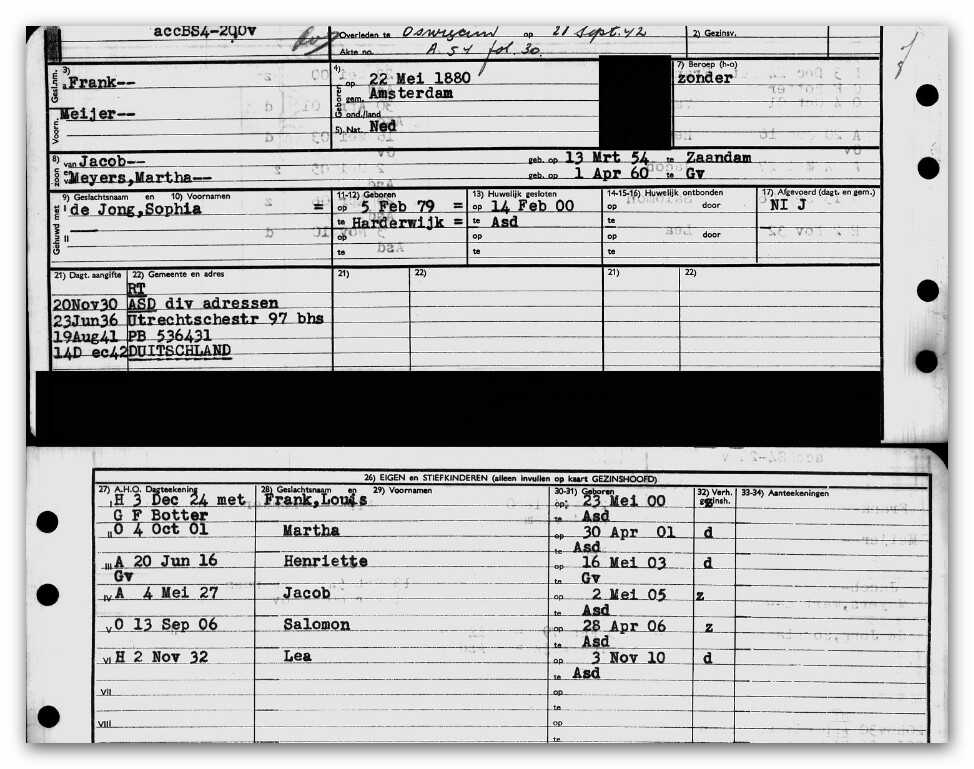 accBS4-290v
Overleden te Oswiecim op 21 Sept. 42
Akte no. A.51 fol. 30.
2) Gezinsv.
Gesl.nm. 3) a Frank--
Voorn. Meijer--
4) Geboren op 22 Mei 1880
gem. Amsterdam
ond./land
5) Nat. Ned
7) Beroep (h-o)
zonder
8) zoon van Jacob-- geb. op 13 Mrt 54 te Zaandam
en van Meyers,Martha-- geb. op 1 Apr 60 te Gv
9) Geslachtsnaam en 10) Voornamen 11-12) Geboren 13) Huwelijk gesloten 14-15-16) Huwelijk ontbonden 17) Afgevoerd (dagt. en gem.)
Gehuwd met I de Jong,Sophia = op 5 Feb 79 = op 14 Feb 00 op door NI J
te Harderwijk = te Asd te
II op op op door
te te te
21) Dagt. aangifte 22) Gemeente en adres 21) 22) 21) 22)
RT
20Nov30 ASD div adressen
23Jun36 Utrechtschestr 97 bhs
19Aug41 PB 536431
14D ec42 DUITSCHLAND
26) EIGEN en STIEFKINDEREN (alleen invullen op kaart GEZINSHOOFD)
27) A.H.O. Dagteekening 28) Geslachtsnaam en 29) Voornamen 30-31) Geboren 32) Verh. gezinsh. 33-34) Aanteekeningen
I H 3 Dec 24 met Frank,Louis op 23 Mei 00 z
G F Botter te Asd
II O 4 Oct 01 Martha op 30 Apr 01 d
te Asd
III A 20 Jun 16 Henriette op 16 Mei 03 d
Gv te Gv
IV A 4 Mei 27 Jacob op 2 Mei 05 z
te Asd
V O 13 Sep 06 Salomon op 28 Apr 06 z
te Asd
VI H 2 Nov 32 Lea op 3 Nov 10 d
te Asd
VII op
te
VIII op
te